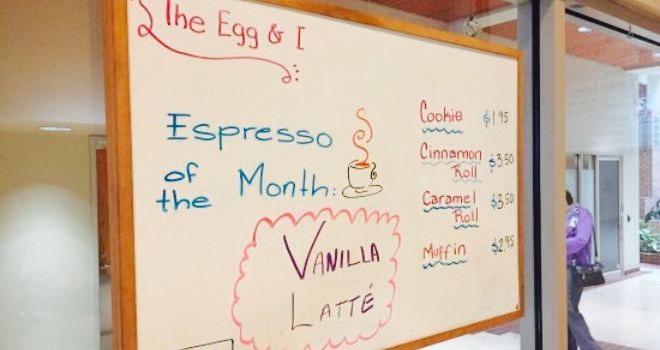 The Egg & I
Espresso
of
the Month:
VANILLA
LATTÉ
Cookie $1.95
Cinnamon
Roll $3.50
Caramel
Roll $3.50
Muffin $2.95